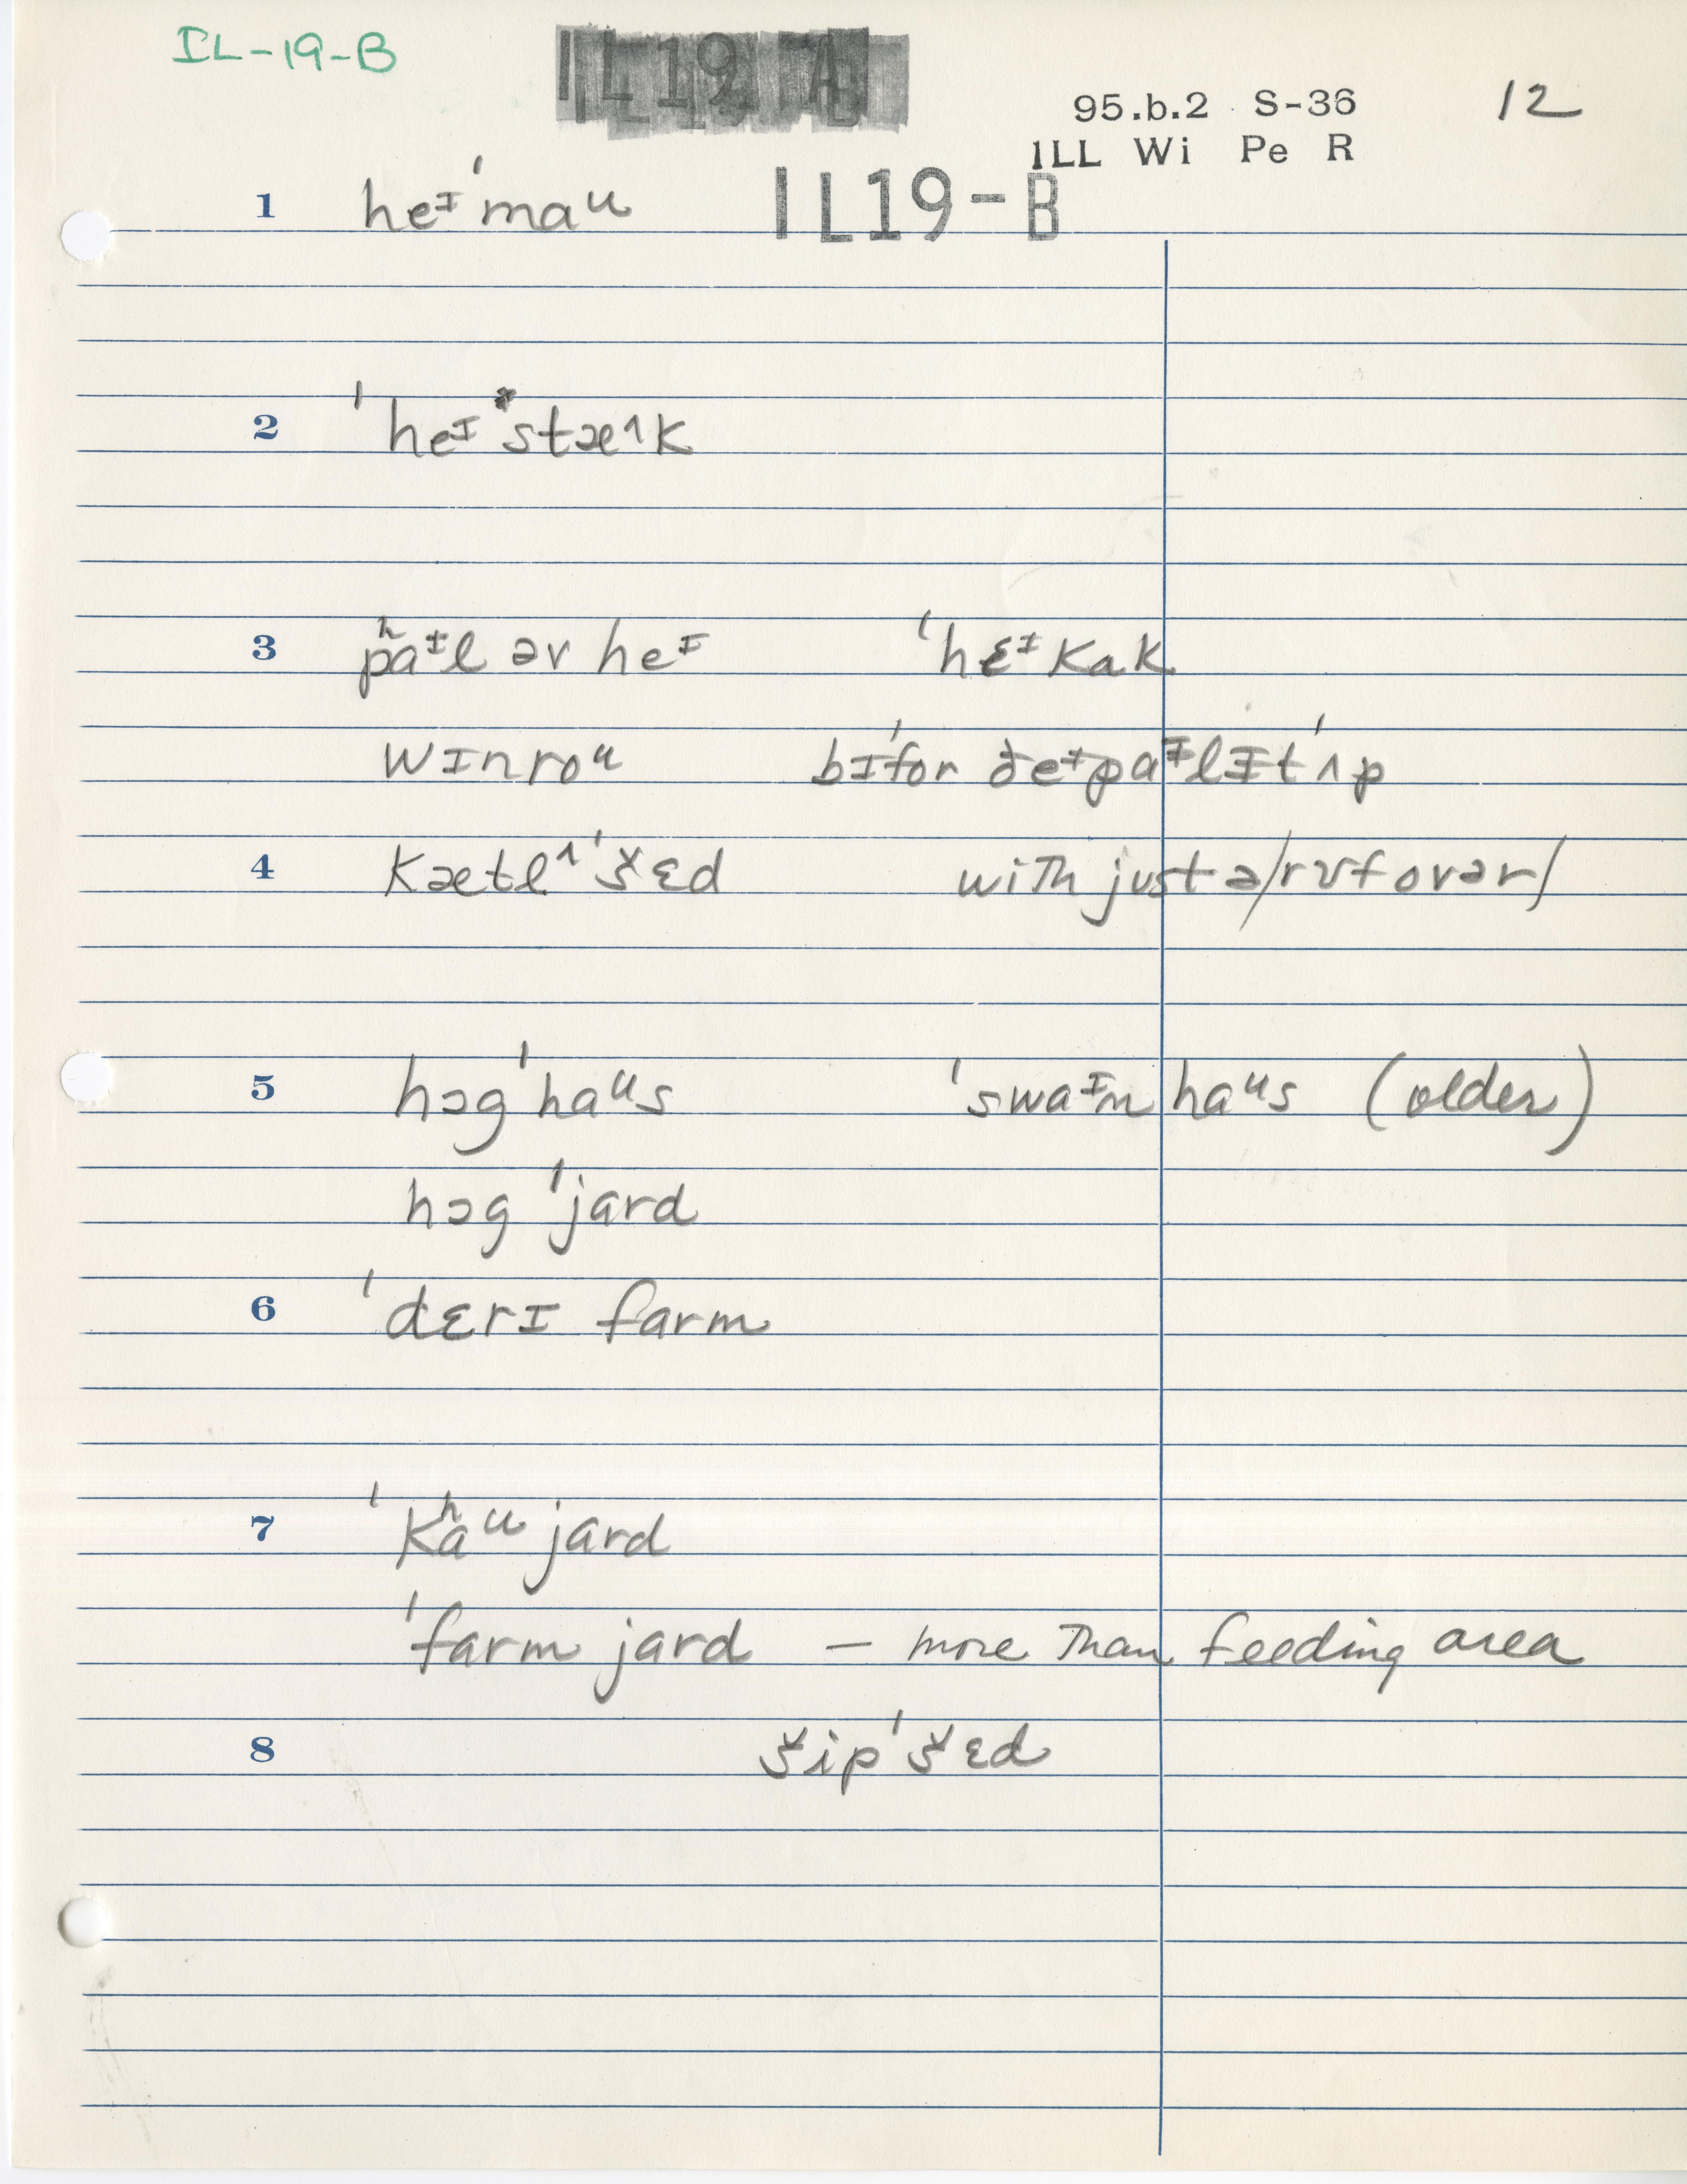 IL-19-B
95.b.2 S-36 12
ILL Wi Pe R
IL19-B
1 heᶦˈmaᵘ
2 ˈheᶦstæ^k
3 pʰaᶦl əv heᶦ ˈhɛᶦkak
wɪnroᵘ bɪˈfor ðeᶦpaᶦlɪtˈʌp
4 kætl^ˈšɛd with just ə/rʊf ovər/
5 hɔgˈhaᵘs ˈswaᶦn haᵘs (older)
hɔg ˈjard
6 ˈdɛrɪ farm
7 ˈkʰaᵘ jard
ˈfarm jard — more than feeding area
8 šipˈšɛd